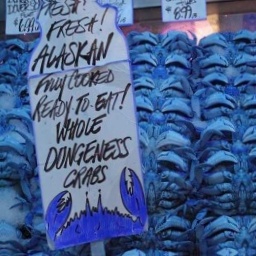 FRESH!
FRESH!
ALASKAN
FULLY COOKED
READY-TO-EAT!
WHOLE
DUNGENESS
CRABS